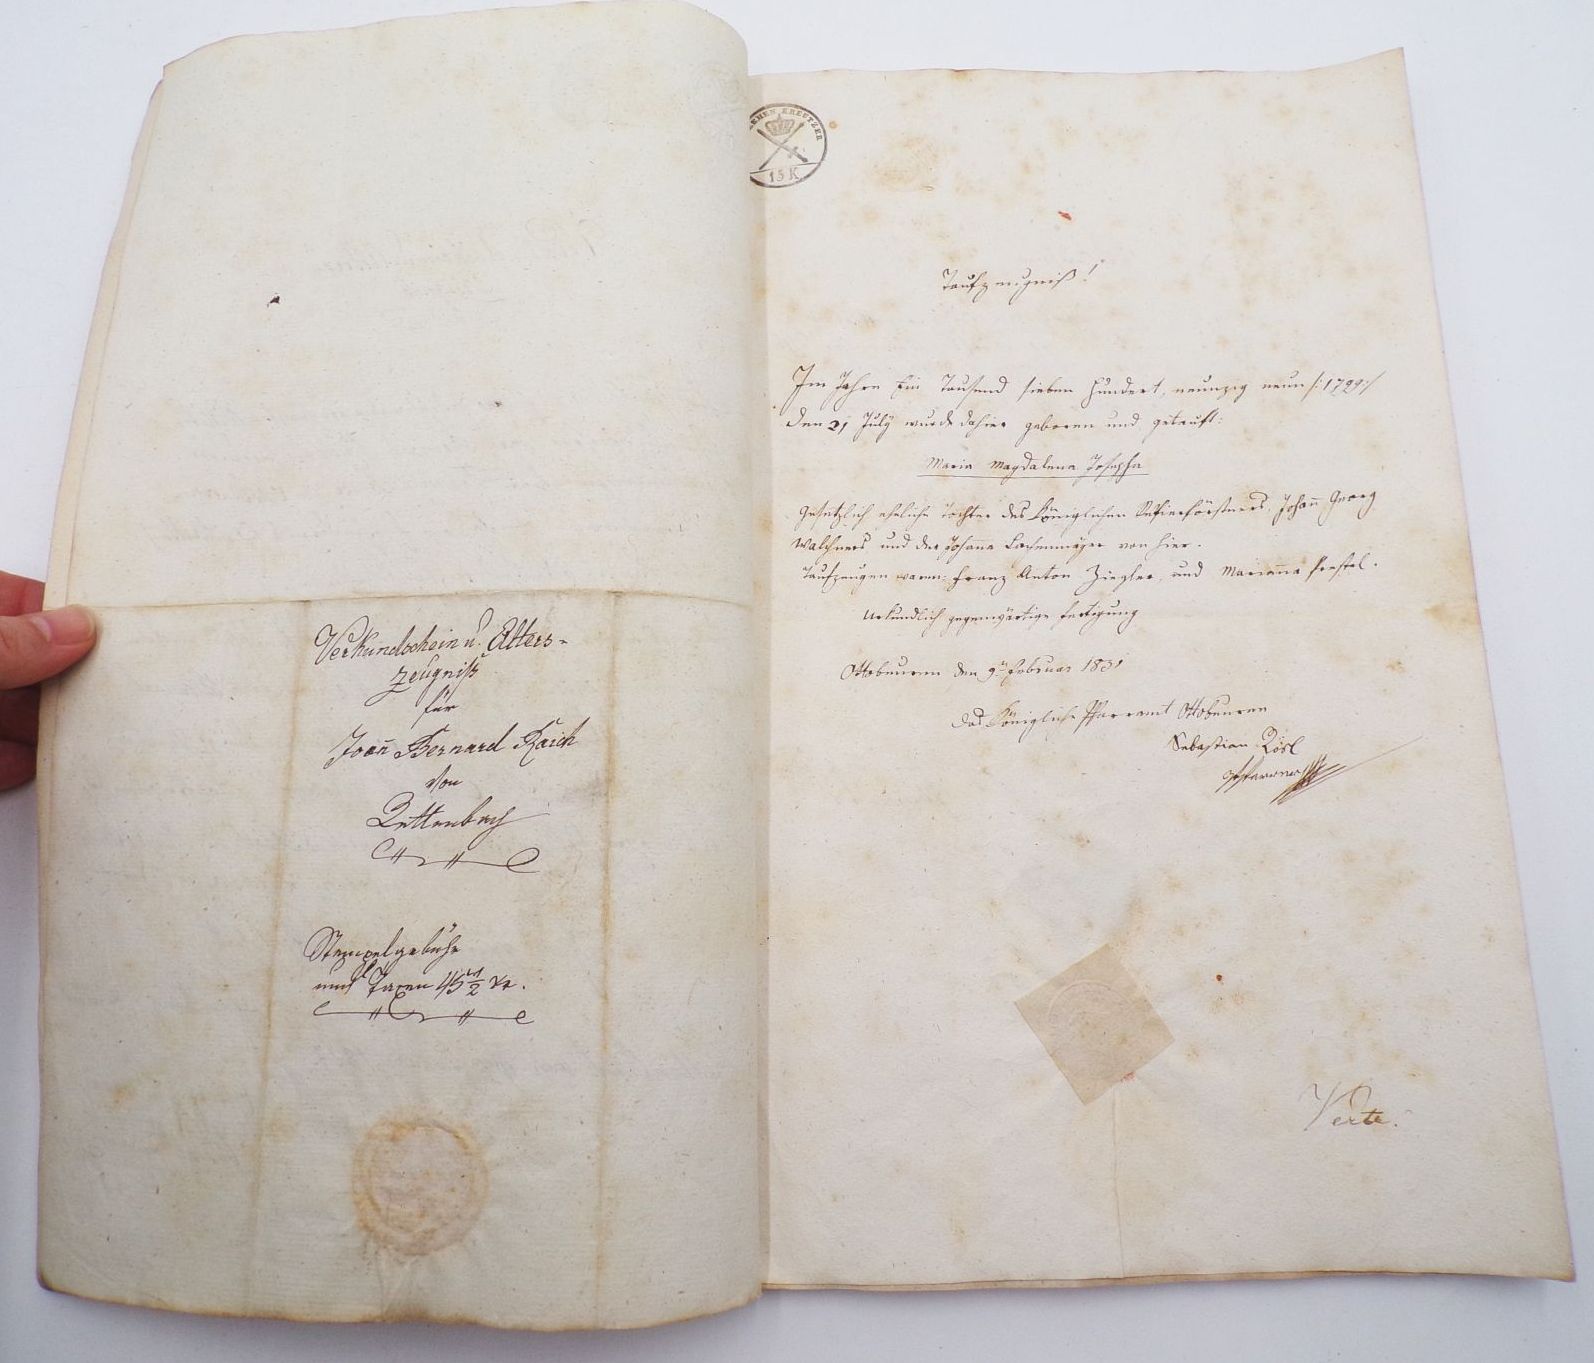 Verkundschein u. Alters-
zeugniß
für
Joan̄ Bernard Raich
von
Rettenbach
Stempelgebühr
und Taxen 45 1/2 xr.
KREUTZER
15 K
Taufzeugniß!
Im Jahre Ein Tausend sieben Hundert, neunzig neun /: 1799 :/
den 21 July wurde dahier geboren und getauft:
Maria Magdalena Josepha
gesetzlich eheliche Tochter des Königlichen Revierförsters, Johan̄ Georg
Walchners und der Johanna Lachenmayer von hier.
Taufzeugen waren: Franz Anton Ziegler, und Marian̄a Prestel.
Urkundlich gegenwärtige Fertigung
Ottobeuren den 9ten Februar 1831
Das Königliche Pfarramt Ottobeuren
Sebastian Rösl
Pfarrer
Verte.